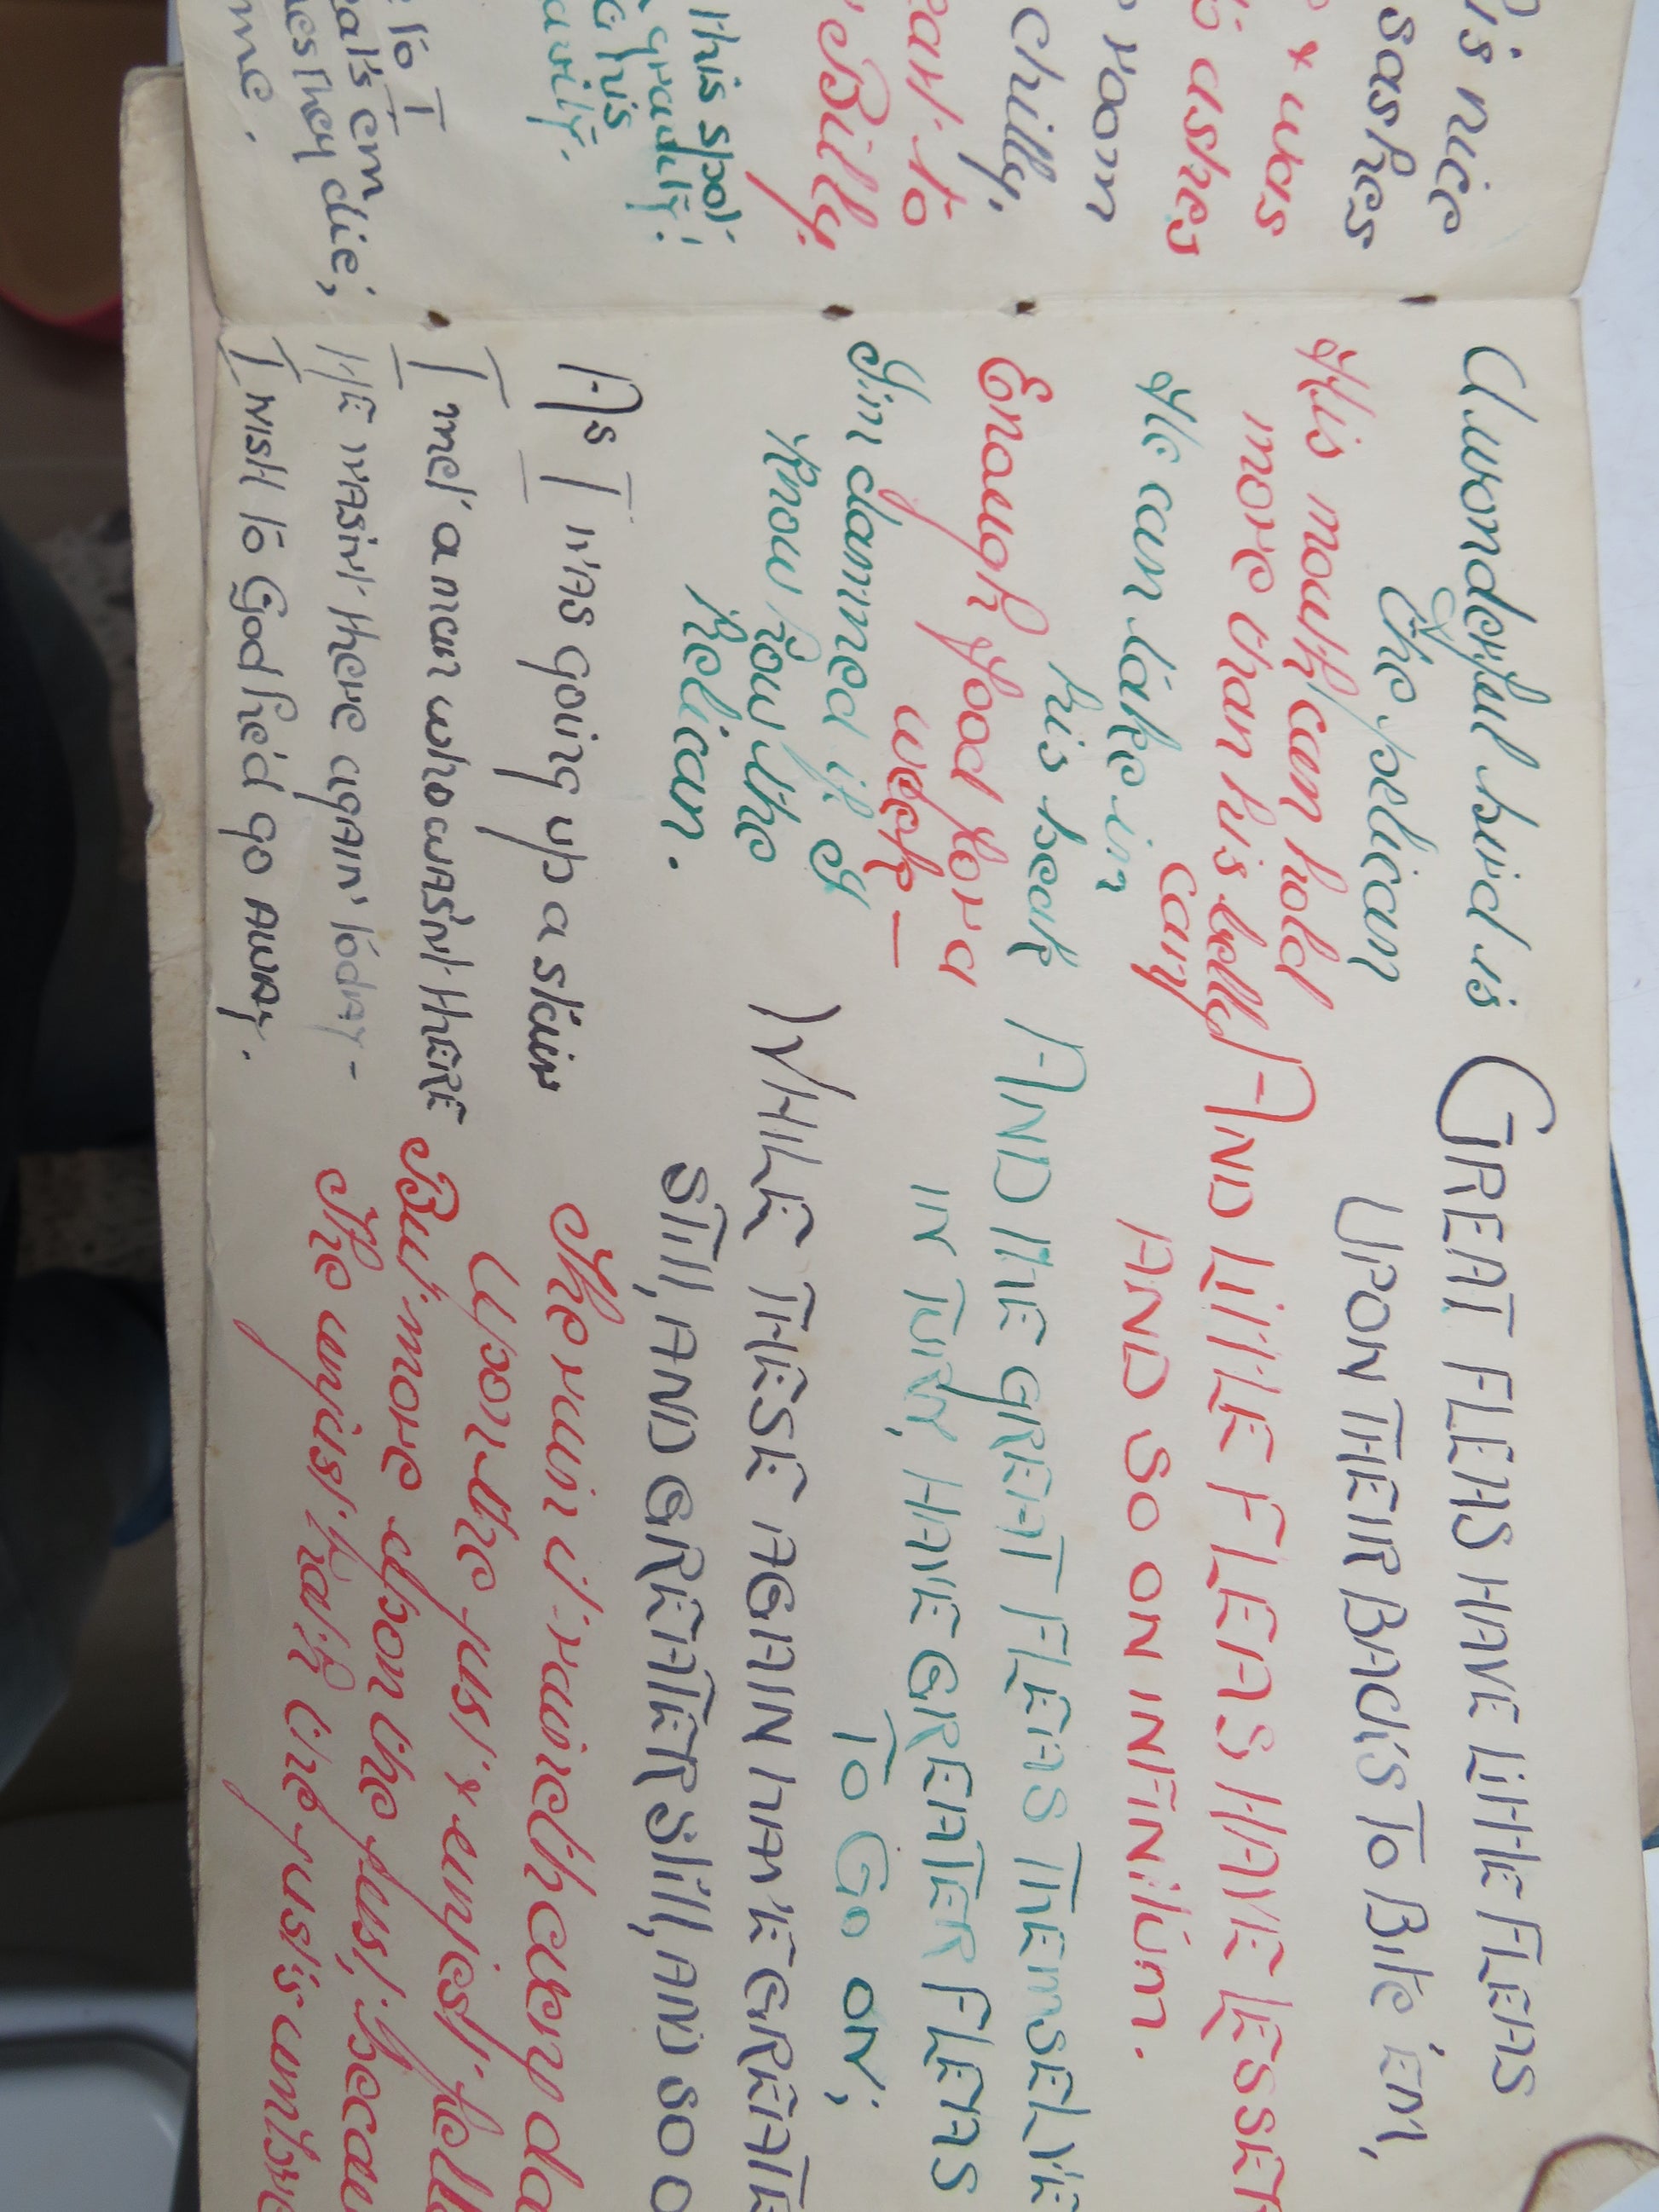 is nice
sashes
& was
to ashes
room
chilly,
to
Billy.
this spot
gravity;
this
avity.
to I
eats 'em
they die;
me.
A wonderful bird is
The pelican
His mouth can hold
more than his belly
can
He can take in
his beak
Enough food for a
week —
I'm damned if I
know how the
Pelican.
As I was going up a stair
I met a man who wasn't there
He wasn't there again today -
I wish to God he'd go away.
GREAT FLEAS HAVE LITTLE FLEAS
UPON THEIR BACKS TO BITE 'EM,
AND LITTLE FLEAS HAVE LESSER
AND SO ON INFINITUM.
AND THE GREAT FLEAS THEMSELVE
IN TURN, HAVE GREATER FLEAS
TO GO ON;
WHILE THESE AGAIN HAVE GREATE
STILL, AND GREATER STILL, AND SO O
The rain it raineth every da
Upon the just & unjust fell
But more upon the just, becau
The unjust hath the just's umbre